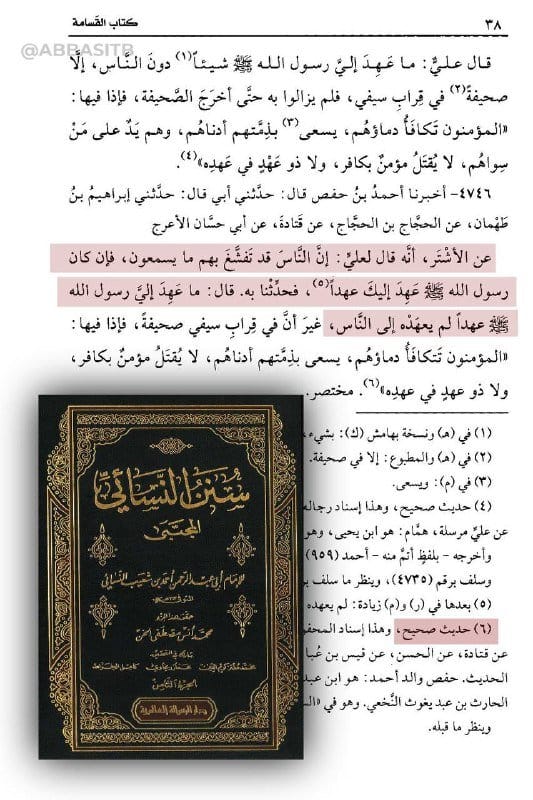 @ABBASITB
٣٨ كتاب القَسامة
قال عليٌّ: ما عَهِدَ إليَّ رسول الله ﷺ شيئاً(١) دونَ النَّاس، إلَّا
صحيفةً(٢) في قِرابِ سيفي، فلم يزالوا به حتَّى أخرَجَ الصَّحيفة، فإذا فيها:
«المؤمنون تَكافَأُ دماؤهُم، يسعى(٣) بذِمَّتهم أدناهُم، وهم يَدٌ على مَنْ
سِواهُم، لا يُقتَلُ مؤمنٌ بكافر، ولا ذو عَهْدٍ في عَهدِه»(٤).
٤٧٤٦- أخبرنا أحمدُ بنُ حفص قال: حدَّثني أبي قال: حدَّثني إبراهيمُ بنُ
طَهْمان، عن الحجَّاج بن الحجَّاج، عن قتادةَ، عن أبي حسَّان الأعرج
عن الأشْتَر، أنَّه قال لعليٍّ: إنَّ النَّاسَ قد تَفشَّغَ بهم ما يسمعون، فإن كان
رسول الله ﷺ عَهِدَ إليكَ عهداً(٥)، فحدِّثْنا به. قال: ما عَهِدَ إليَّ رسول الله
ﷺ عهداً لم يعهَدْه إلى النَّاس، غيرَ أنَّ في قِرابِ سيفي صحيفةً، فإذا فيها:
«المؤمنون تَتكافَأُ دماؤُهُم، يسعى بذِمَّتهم أدناهُم، لا يُقتَلُ مؤمنٌ بكافر،
ولا ذو عهدٍ في عهدِه»(٦). مختصر.
(١) في (هـ) ونسخة بهامش (ك): بشيء،
(٢) في (هـ) والمطبوع: إلا في صحيفة.
(٣) في (م): ويسعى.
(٤) حديث صحيح، وهذا إسناد رجاله
عن عليٍّ مرسلة، همَّام: هو ابن يحيى، وهو
وأخرجه - بلفظٍ أتمَّ منه - أحمد (٩٥٩)
وسلف برقم (٤٧٣٥)، وينظر ما سلف بر
(٥) بعدها في (ر) و(م) زيادة: لم يعهده
(٦) حديث صحيح، وهذا إسناد المحفو
عن قتادة، عن الحسن، عن قيس بن عُبا
الحديث. حفص والد أحمد: هو ابن عبد
الحارث بن عبد يغوث النَّخَعي. وهو في «السـ
وينظر ما قبله.
سنن النسائي
المجتبى
للإمام أبي عبد الرحمن أحمد بن شعيب النسائي
الجزء الثامن
دار الرسالة العالمية